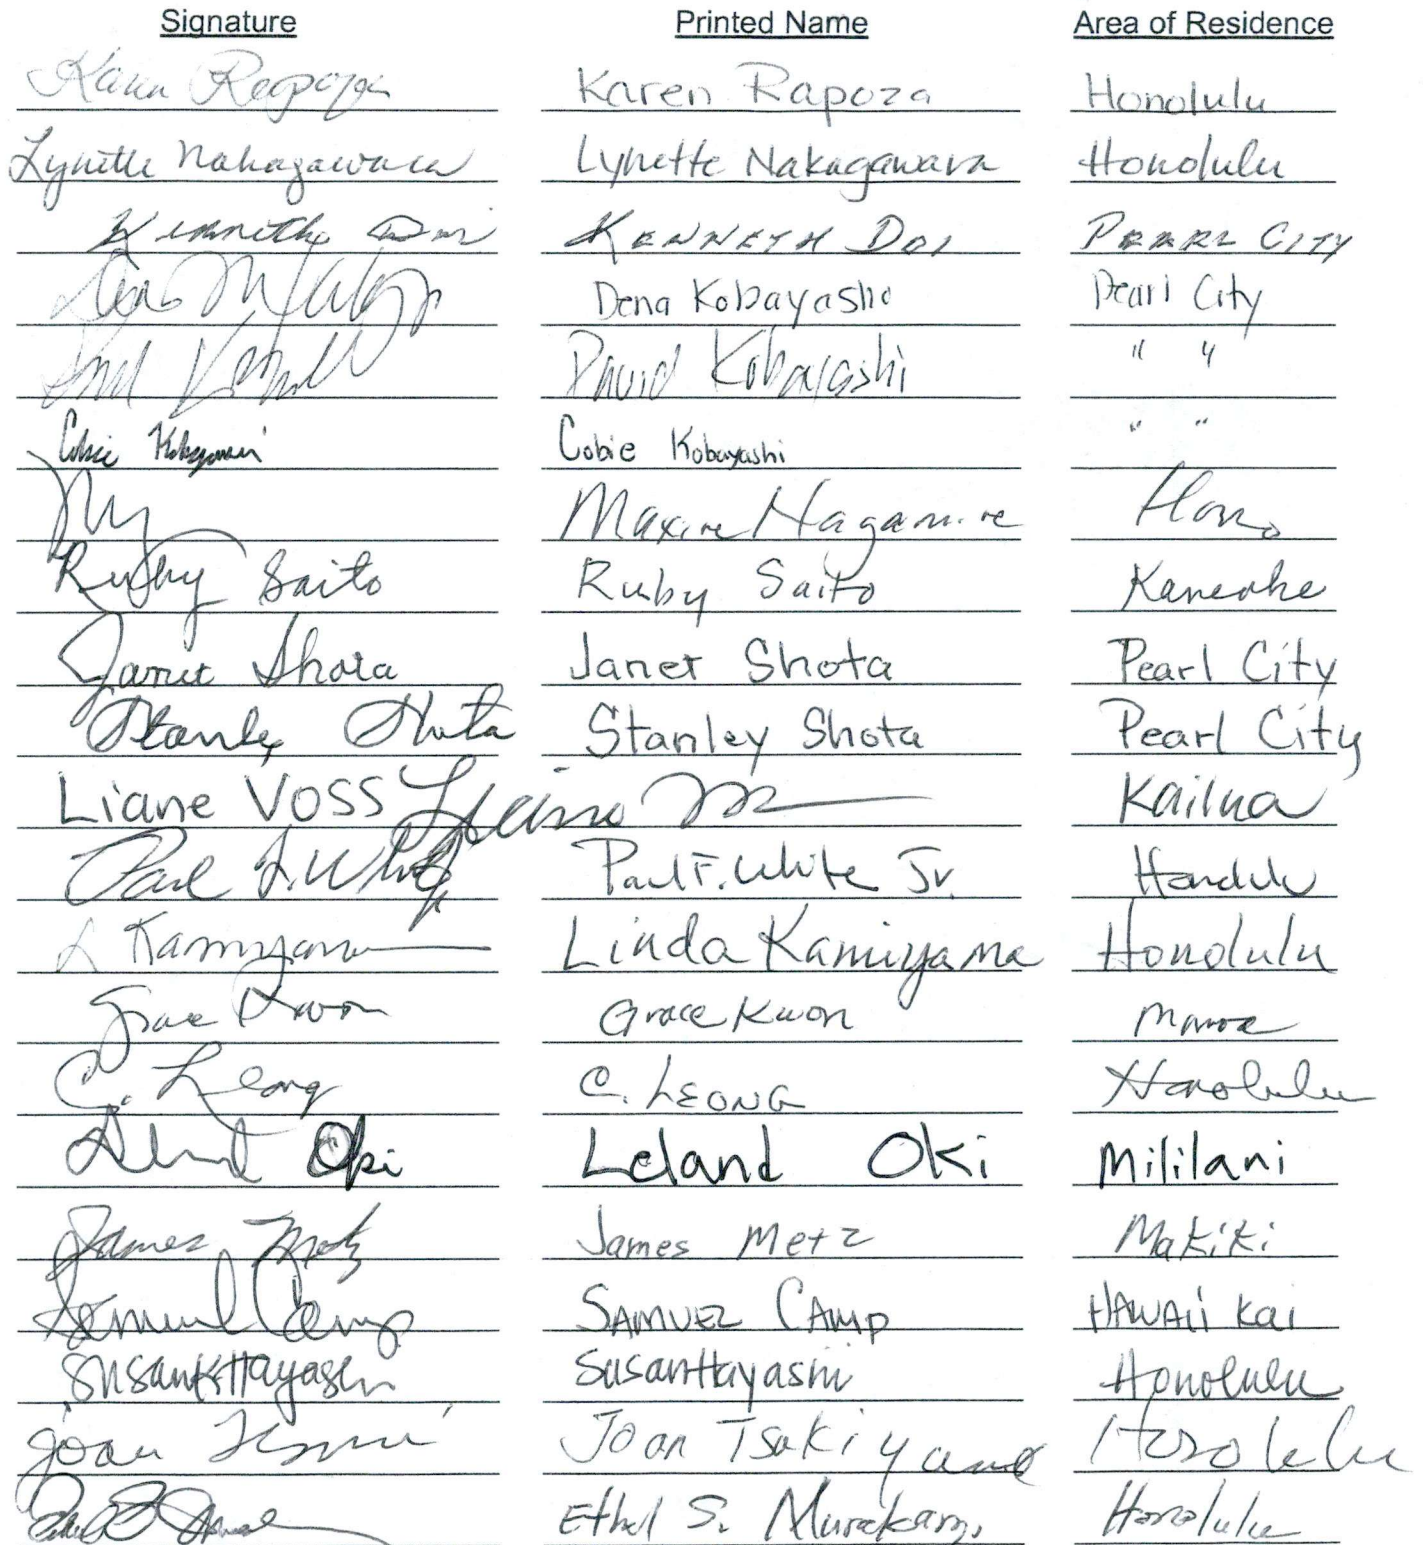 Signature Printed Name Area of Residence
Karen Rapoza Karen Rapoza Honolulu
Lynette Nakagawara Lynette Nakagawara Honolulu
Kenneth Doi KENNETH DOI PEARL CITY
Dena Kobayashi Pearl City
David Kobayashi " "
Cobie Kobayashi Cobie Kobayashi " "
Maxine Nagamine Hono
Ruby Saito Ruby Saito Kaneohe
Janet Shota Janet Shota Pearl City
Stanley Shota Stanley Shota Pearl City
Liane VOSS Kailua
Paul F. White Jr. Paul F. White Jr. Honolulu
L Kamiyama Linda Kamiyama Honolulu
Grace Kwon Grace Kwon Manoa
C. Leong C. LEONG Honolulu
Leland Oki Leland Oki Mililani
James Metz James Metz Makiki
Samuel Camp SAMUEL CAMP HAWAII Kai
Susan K. Hayashi Susan Hayashi Honolulu
Joan Joan Tsukiyama Honolulu
Ethel S. Murakami Honolulu